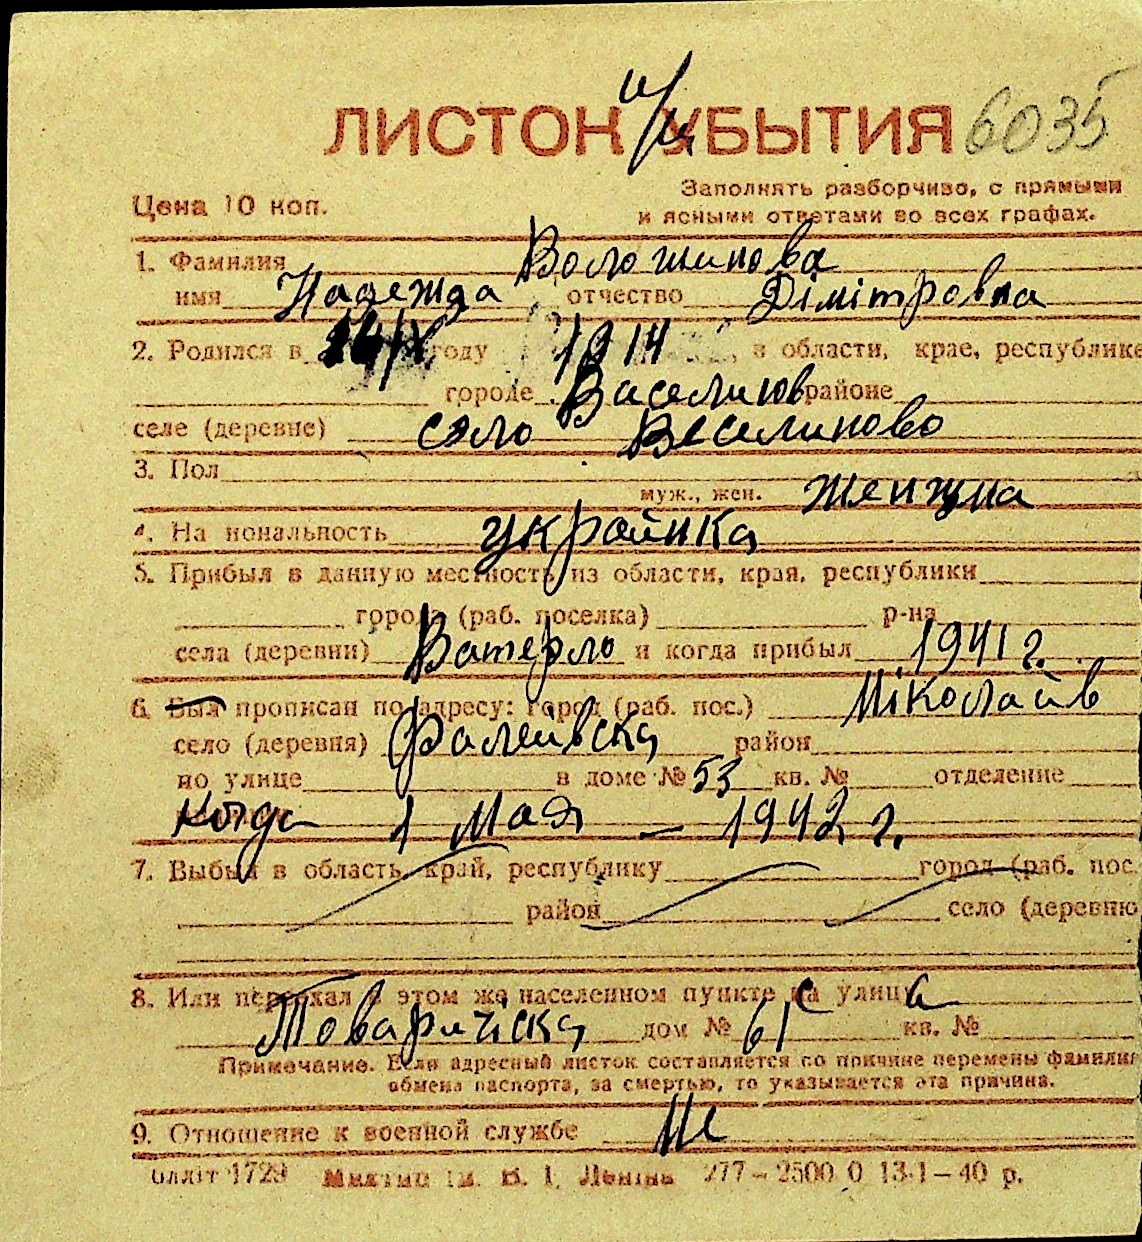 ЛИСТОК УБЫТИЯ 6035
Цена 10 коп.
Заполнять разборчиво, с прямыми
и ясными ответами во всех графах.
1. Фамилия Волошинова
имя Надежда отчество Дімітровна
2. Родился в году 1914, в области, крае, республике
городе Васелинов районе
селе (деревне) сэло Веселиново
3. Пол
муж., жен. Женщина
4. Национальность украйнка
5. Прибыл в данную местность из области, края, республики
города (раб. поселка) р-на
села (деревни) Ватерло и когда прибыл 1941 г.
6. Был прописан по адресу: город (раб. пос.) Міколаів
село (деревня) Фалеівска район
по улице в доме № 53 кв. № отделение
когда 1 Мая – 1942 г.
7. Выбыл в область, край, республику город (раб. пос.
район село (деревню
8. Или переехал в этом же населенном пункте на улицу
дом № 61 кв. №
Примечание. Если адресный листок составляется по причине перемены фамилии
обмена паспорта, за смертью, то указывается эта причина.
9. Отношение к военной службе Не
1729 им. В. І. Леніна 277–2500 0 13-1–40 р.